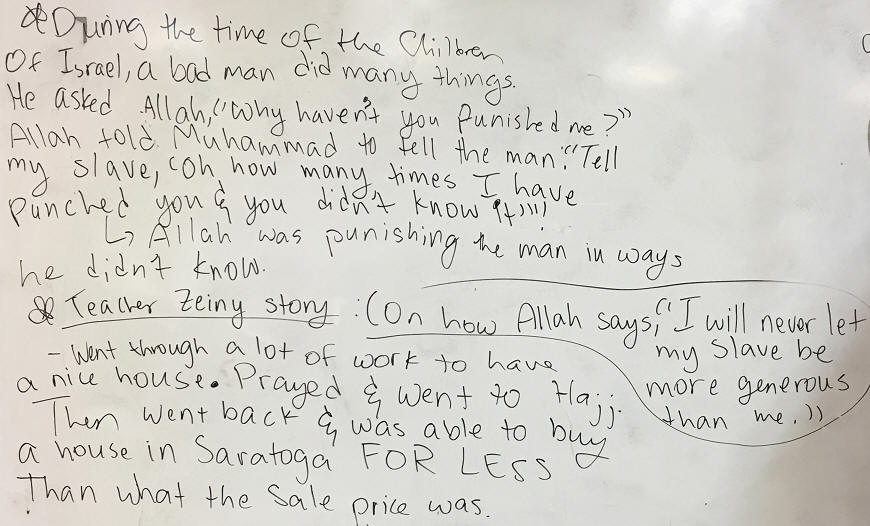 * During the time of the Children
Of Israel, a bad man did many things.
He asked Allah, "Why haven't you punished me?"
Allah told Muhammad to tell the man: "Tell
my slave, "Oh how many times I have
punched you & you didn't know it""
↳ Allah was punishing the man in ways
he didn't know.
* Teacher Zeiny story: (On how Allah says, "I will never let
my slave be
more generous
than me.")
- Went through a lot of work to have
a nice house. Prayed & went to Hajj.
Then went back & was able to buy
a house in Saratoga FOR LESS
Than what the sale price was.